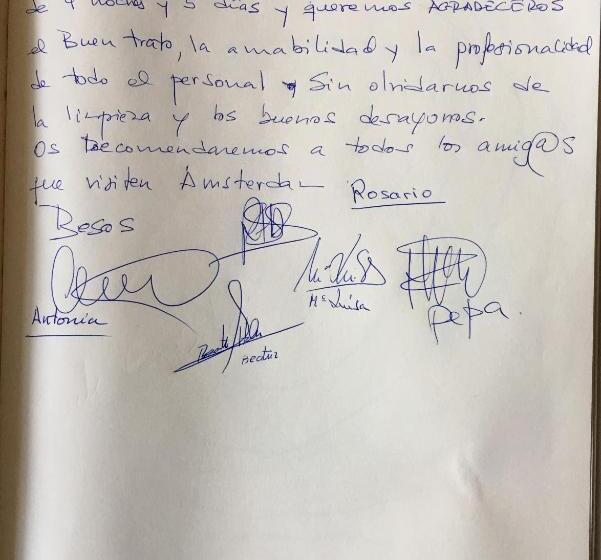 de 4 noches y 5 días y queremos AGRADECEROS
el Buen trato, la amabilidad y la profesionalidad
de todo el personal y Sin olvidarnos de
la limpieza y los buenos desayunos.
Os recomendaremos a todos los amig@s
que visiten Ámsterdam
Rosario
Besos
Mª Luisa
Antonia
Pepa.
Beatriz